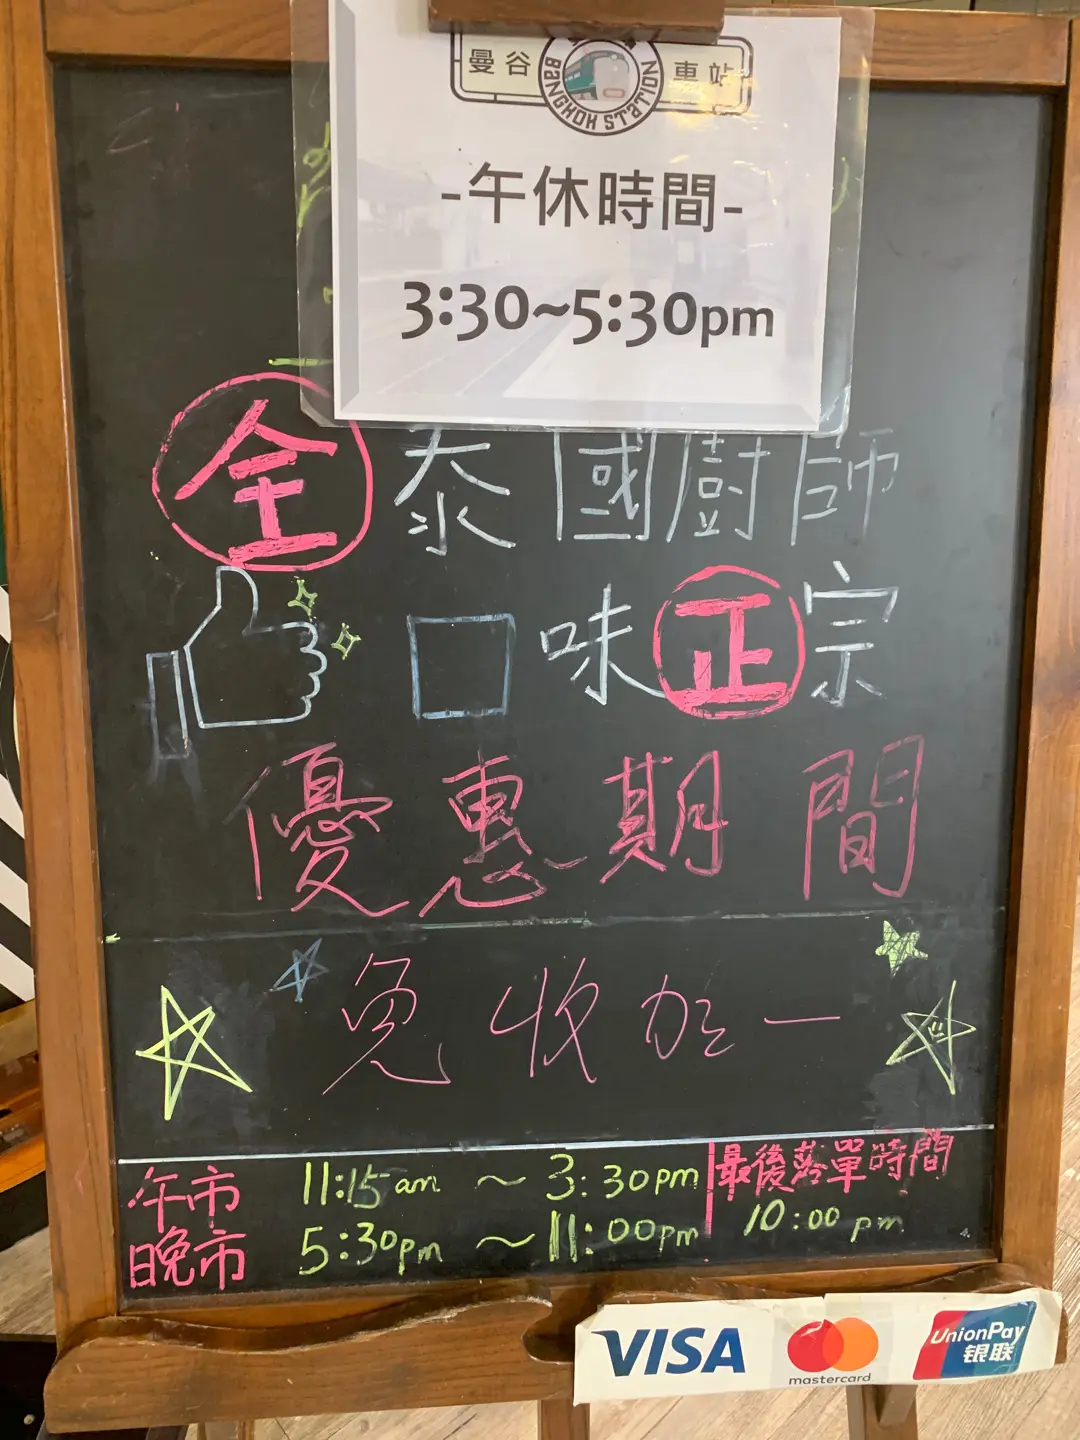 曼谷 車站
BANGKOK STATION
-午休時間-
3:30~5:30pm
全泰國廚師
口味正宗
優惠期間
免收加一
午市 11:15am ~ 3:30pm
晚市 5:30pm ~ 11:00pm
最後落單時間
10:00 pm
VISA
mastercard
UnionPay
银联